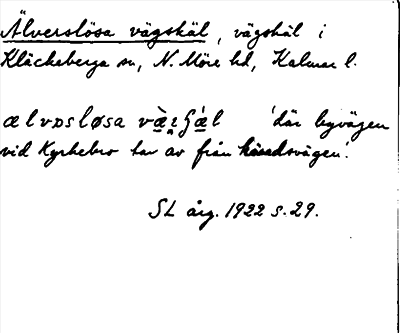 Älverslösa vägskäl, vägskäl i
Kläckeberga sn, N. Möre hd, Kalmar l.
ælvɒsløsa 'där byvägen
vid Kyrkebro tar av från huvudvägen'.
SL årg. 1922 s. 29.